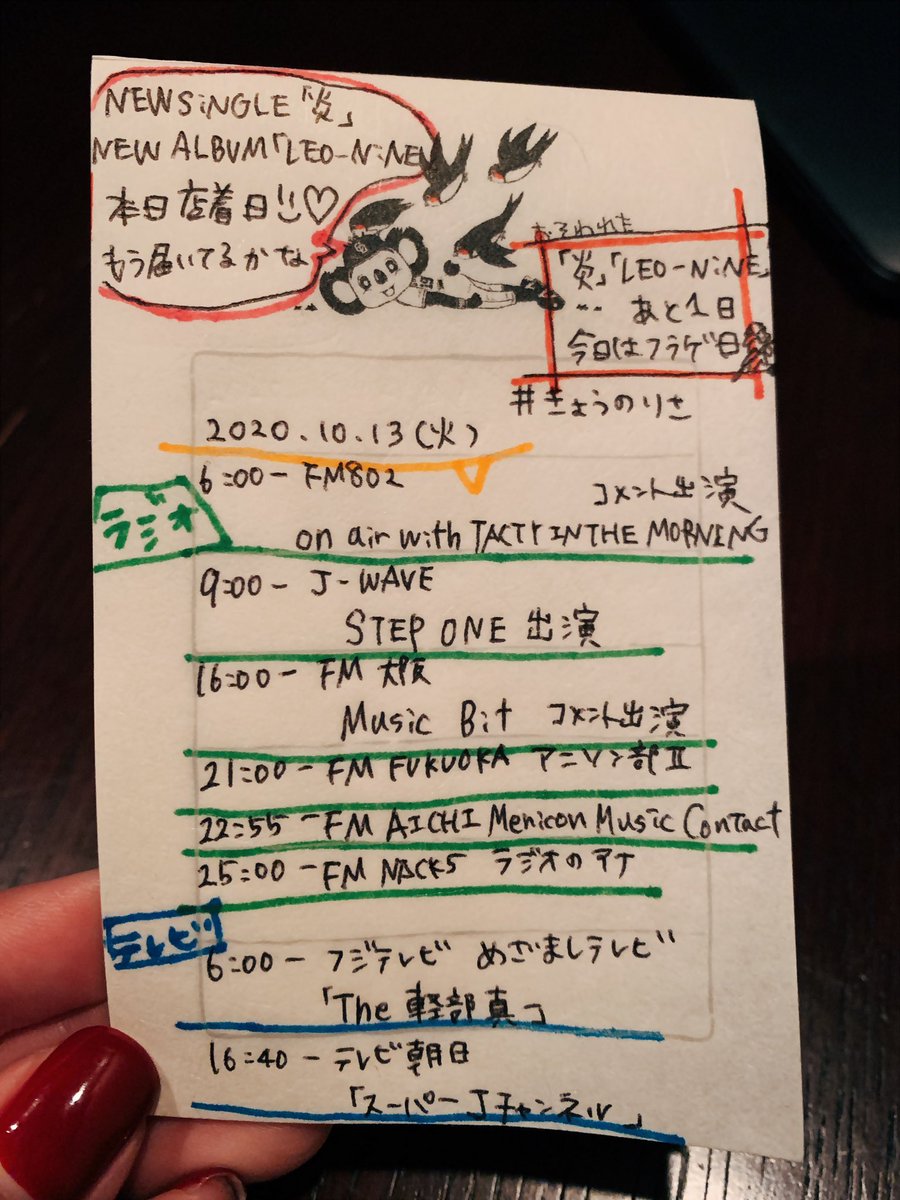 NEW SiNGLE「炎」
NEW ALBUM「LEO-NiNE」
本日店着日!!♡
もう届いてるかな
おそわれた
「炎」「LEO-NiNE」
… あと1日
今日はフラゲ日
#きょうのりさ
2020.10.13(火)
ラジオ
6:00- FM802
コメント出演
on air with TACTY IN THE MORNING
9:00- J-WAVE
STEP ONE 出演
16:00- FM 大阪
Music Bit コメント出演
21:00- FM FUKUOKA アニソン部II
22:55- FM AICHI Menicon Music Contact
25:00- FM NACK5 ラジオのアナ
テレビ
6:00- フジテレビ めざましテレビ
「The 軽部真」
16:40- テレビ朝日
「スーパーJチャンネル」